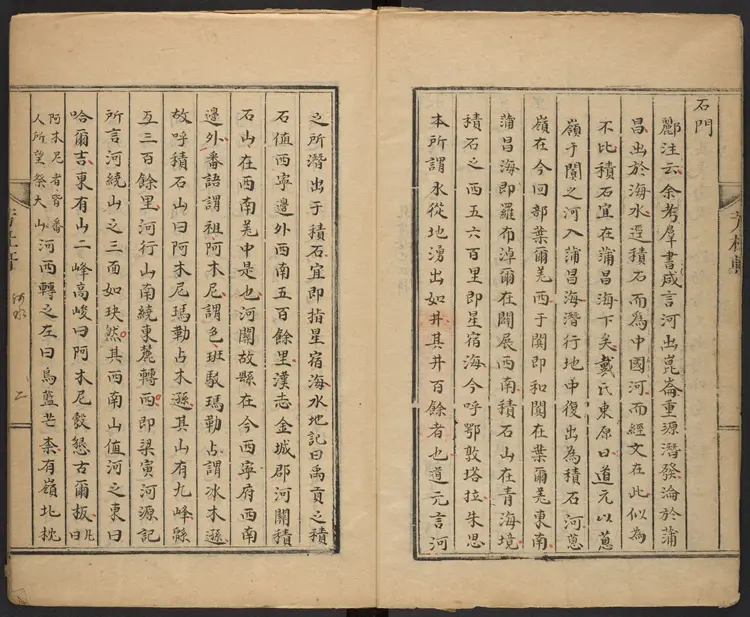 石門
酈注云余考羣書咸言河出崑崙重源潛發淪於蒲
昌出於海水逕積石而為中國河而經文在此似為
不比積石宜在蒲昌海下矣戴氏東原曰道元以蔥
嶺于闐之河入蒲昌海潛行地中復出為積石河蔥
嶺在今回部葉爾羌西于闐即和闐在葉爾羌東南
蒲昌海即羅布淖爾在闢展西南積石山在青海境
積石之西五六百里即星宿海今呼鄂敦塔拉朱思
本所謂水從地湧出如井其井百餘者也道元言河
之所潛出于積石宜即指星宿海水地記曰禹貢之積
石值西寧邊外西南五百餘里漢志金城郡河關積
石山在西南羌中是也河關故縣在今西寧府西南
邊外番語謂祖阿木尼謂色班駁瑪勒占謂冰木遜
故呼積石山曰阿木尼瑪勒占木遜其山有九峰緜
亙三百餘里河行山南繞東麓轉西即梁寅河源記
所言河繞山之三面如玦然其西南山值河之東曰
哈爾吉東有山二峰高峻曰阿木尼㲄懇古爾板凡曰
阿木尼者皆番
人所望祭大山
河西轉之左曰烏藍芒柰有嶺北枕
河水
二